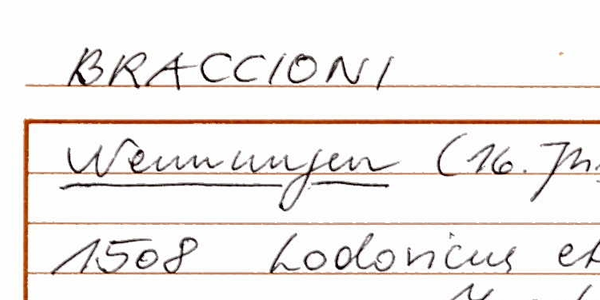 BRACCIONI
Nennungen (16. Jh.
1508 Lodovicus et